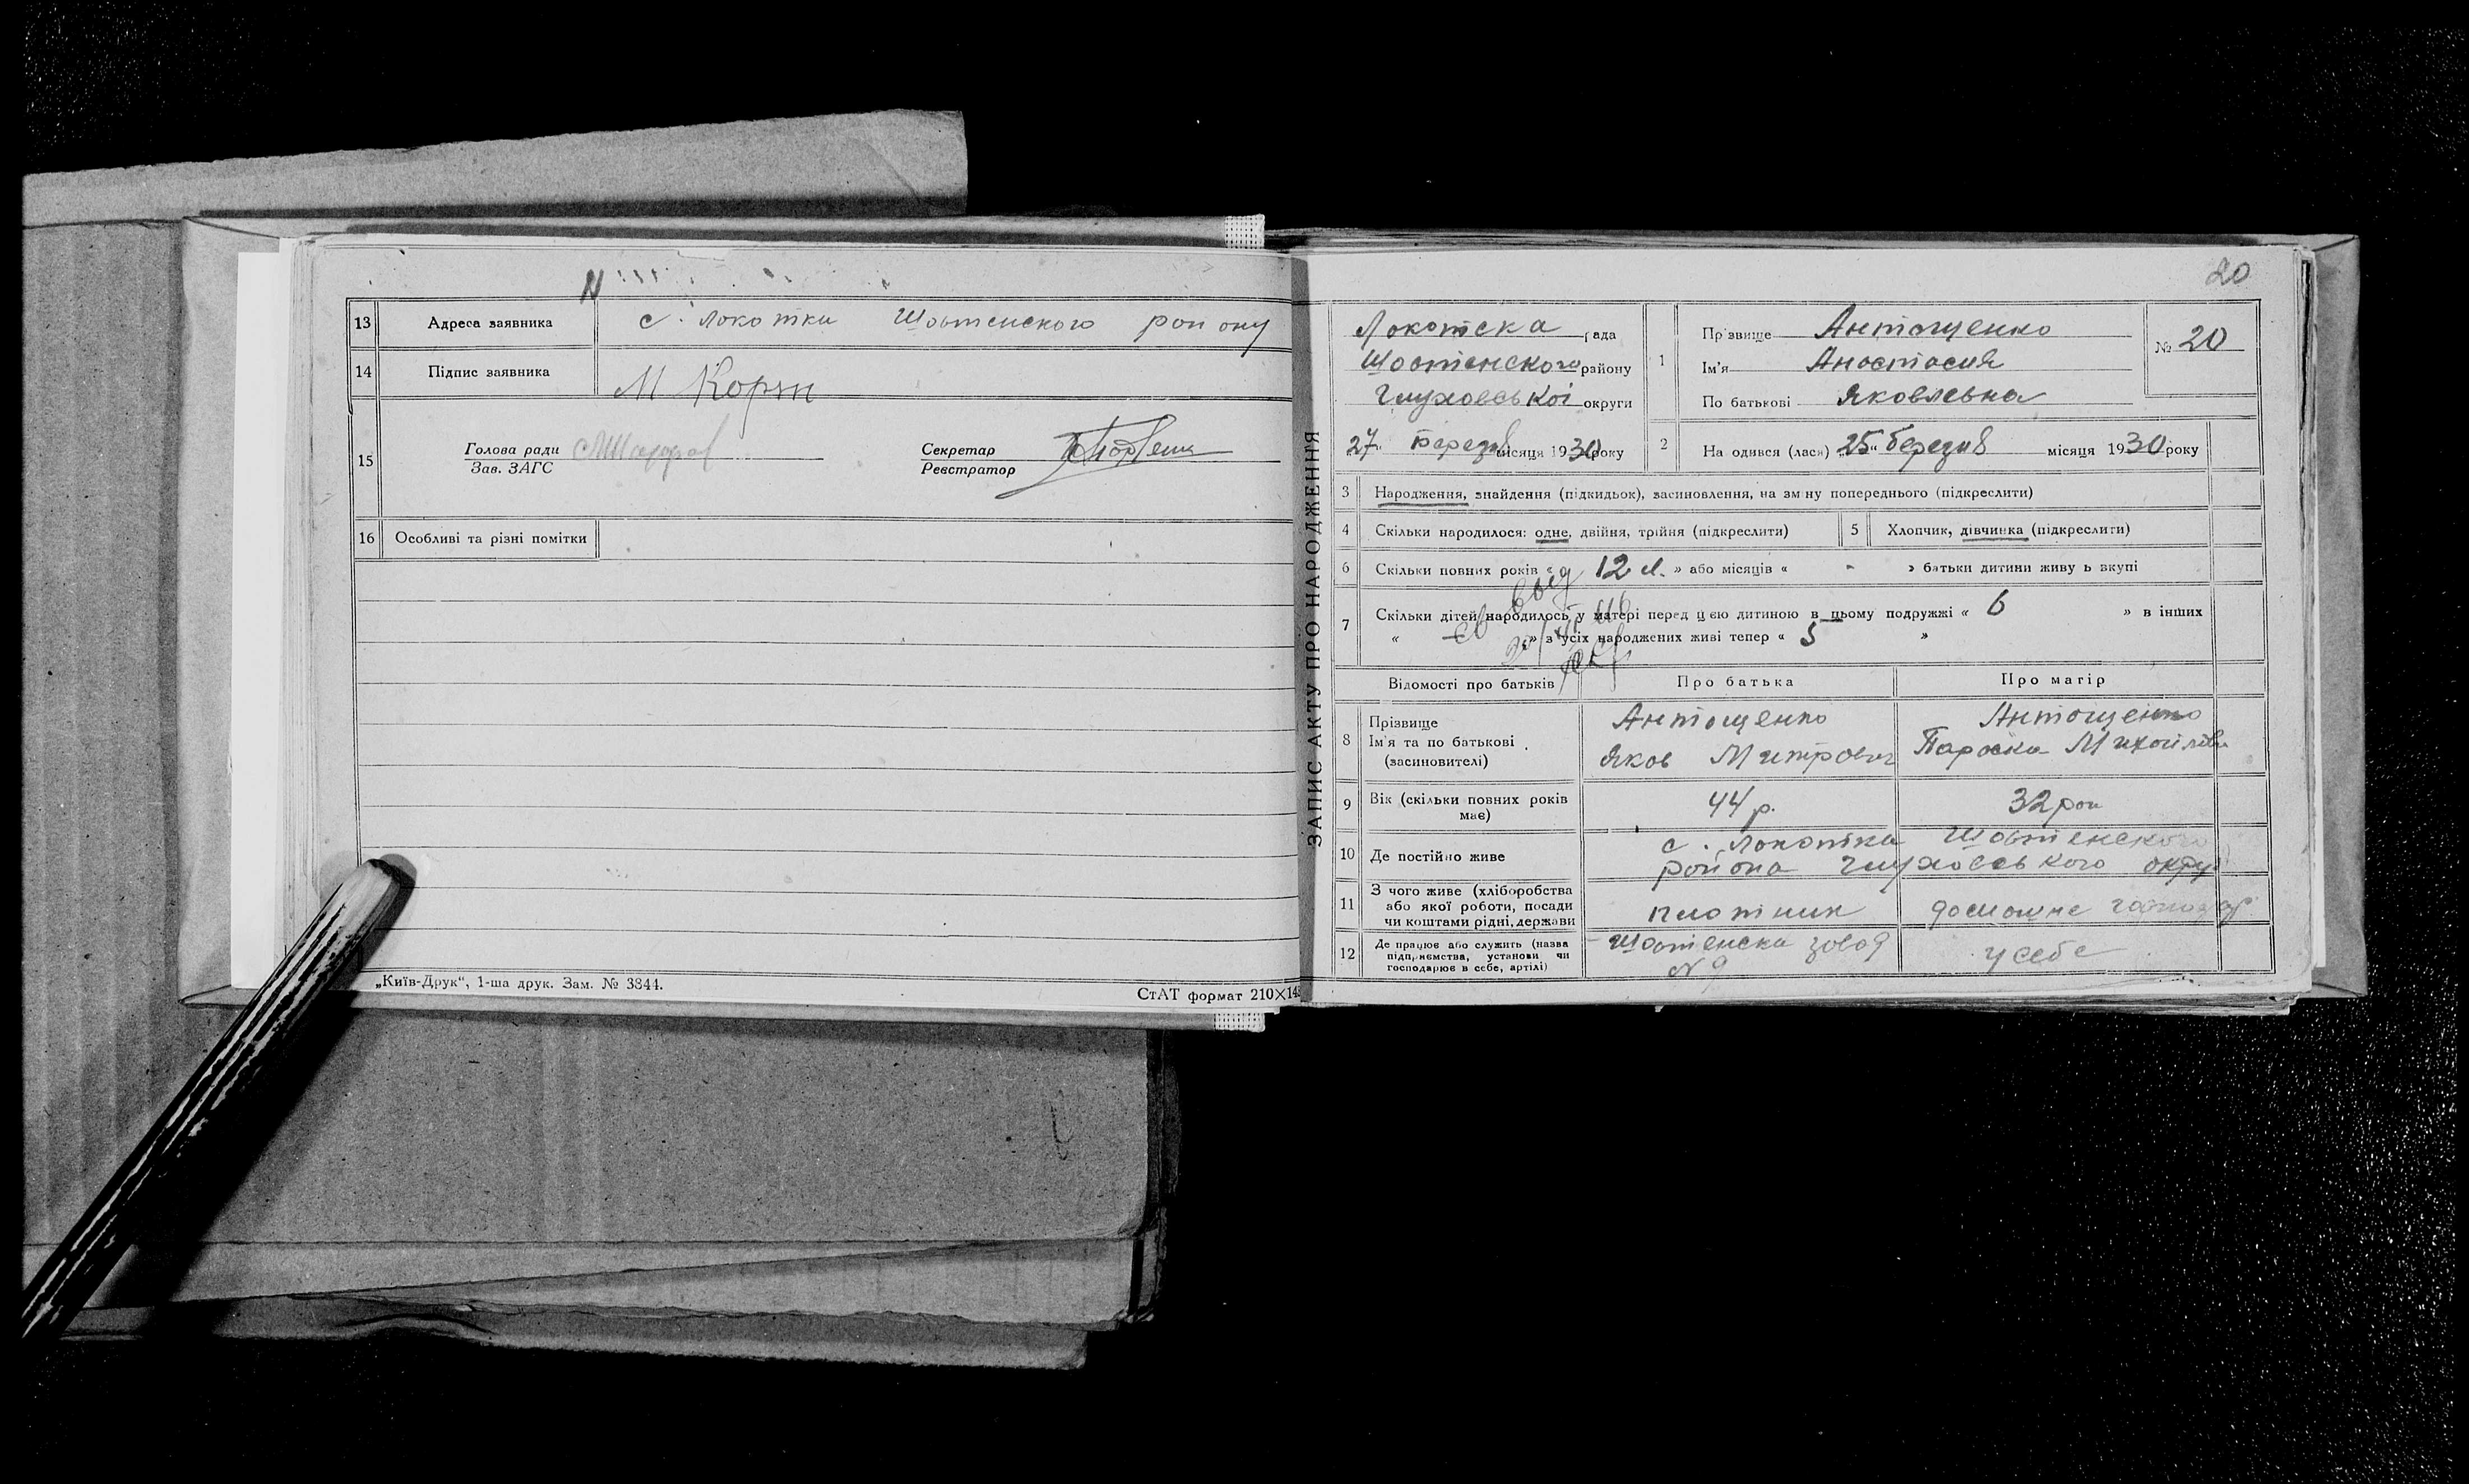 N
13 Адреса заявника с. Локотки Шостенского району
14 Підпис заявника М Корт
15 Голова ради
Зав. ЗАГС
Секретар
Реєстратор
16 Особливі та різні помітки
„Київ-Друк“, 1-ша друк. Зам. № 3844.
СтАТ формат 210×14
ЗАПИС АКТУ ПРО НАРОДЖЕННЯ
20
Локотска рада
Шостенского району
Глуховської округи
27 березня місяця 1930 року
1 Прізвище Антощенко
Ім'я Анастасия
По батькові Яковлевна
№ 20
2 На одився (лася) „25“ березня місяця 1930 року
3 Народження, знайдення (підкидьок), засиновлення, на зміну попереднього (підкреслити)
4 Скільки народилося: одне, двійня, трійня (підкреслити)
5 Хлопчик, дівчинка (підкреслити)
6 Скільки повних років « 12 л. » або місяців « - » батьки дитини живу ь вкупі
7 Скільки дітей народилось у матері перед цією дитиною в цьому подружжі « 6 » в інших
« » з усіх народжених живі тепер « 5 »
Відомості про батьків Про батька Про матір
8 Прізвище
Ім'я та по батькові
(засиновителі)
Антощенко
Яков Митрович
Антощенко
Параска Михойлівн
9 Вік (скільки повних років має)
44 р.
32 рок
10 Де постійно живе
с. Локотка Шостенского
района Глуховського округ
11 З чого живе (хліборобства
або якої роботи, посади
чи коштами рідні, держави
плотник
домошне господар
12 Де працює або служить (назва
підприємства, установи чи
господарює в себе, артілі)
Шостенски завод
№ 9
у себе